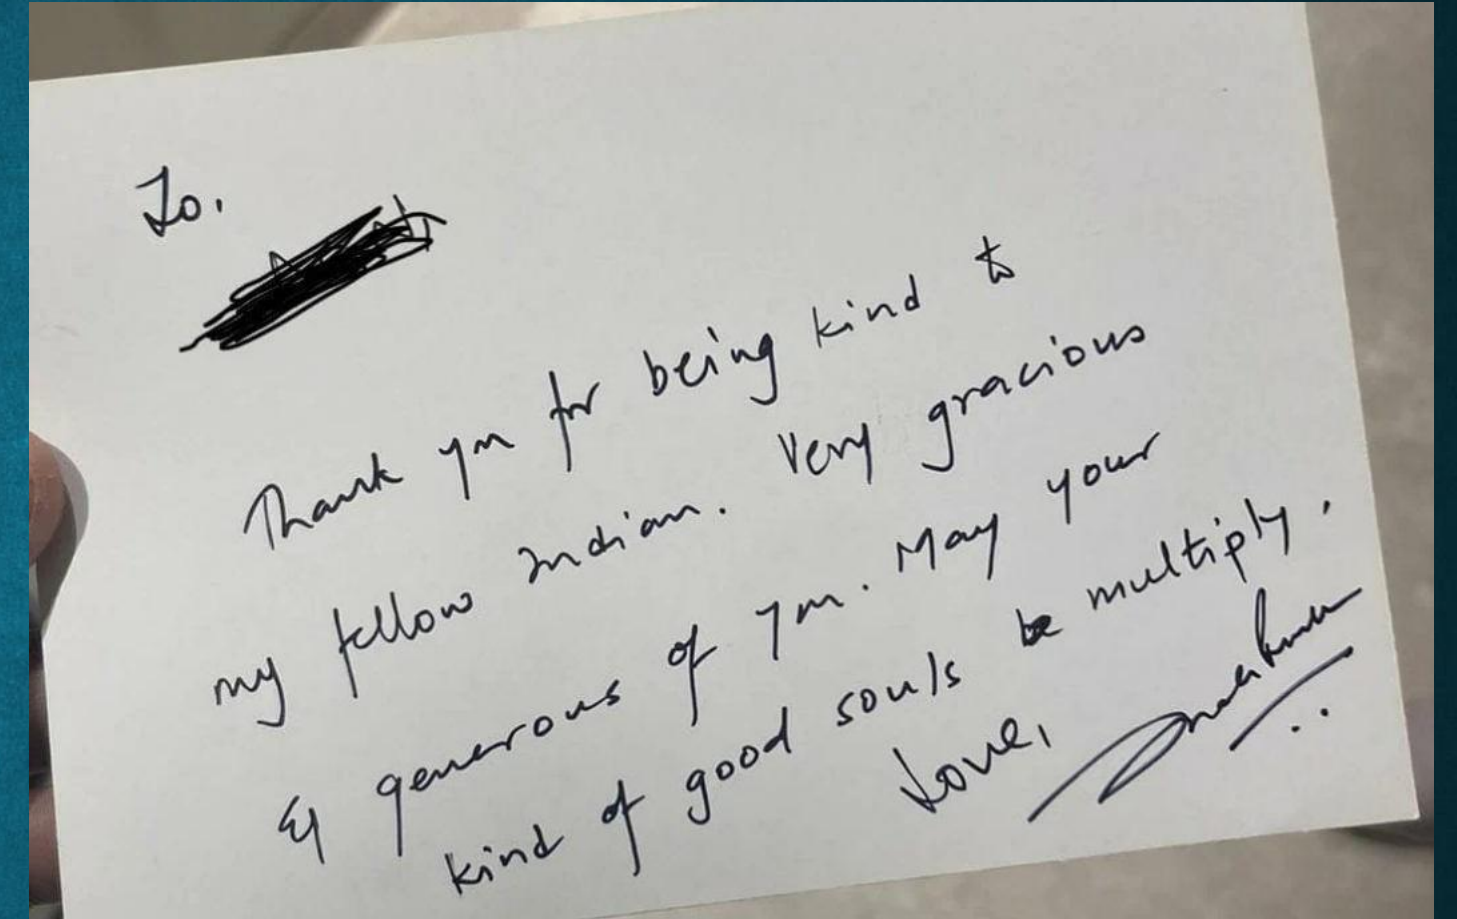 To,
Thank you for being kind to
my fellow Indian. Very gracious
& generous of you. May your
kind of good souls be multiply.
Love,